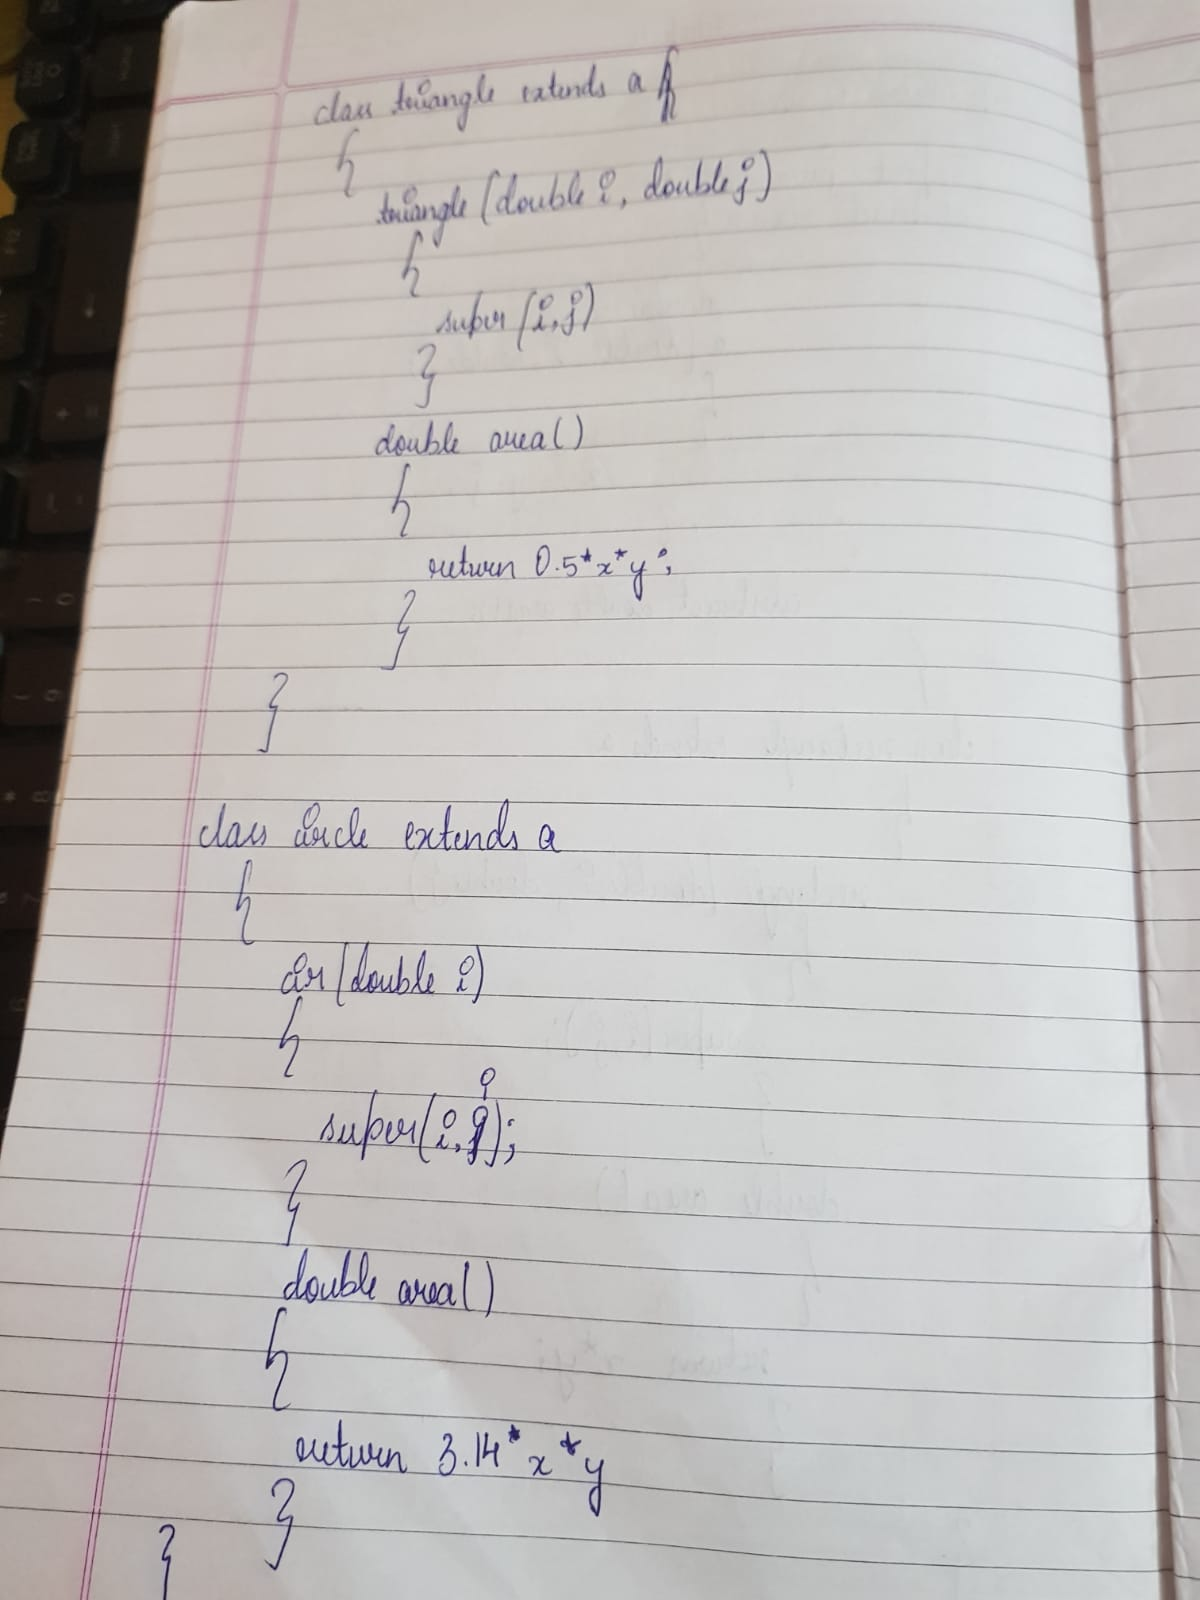 class triangle extends a
{
triangle (double i, double j)
{
super (i,j)
}
double area()
{
return 0.5*x*y;
}
}
class circle extends a
{
cir(double i)
{
super(i,i);
}
double area()
{
return 3.14*x*y
}
}